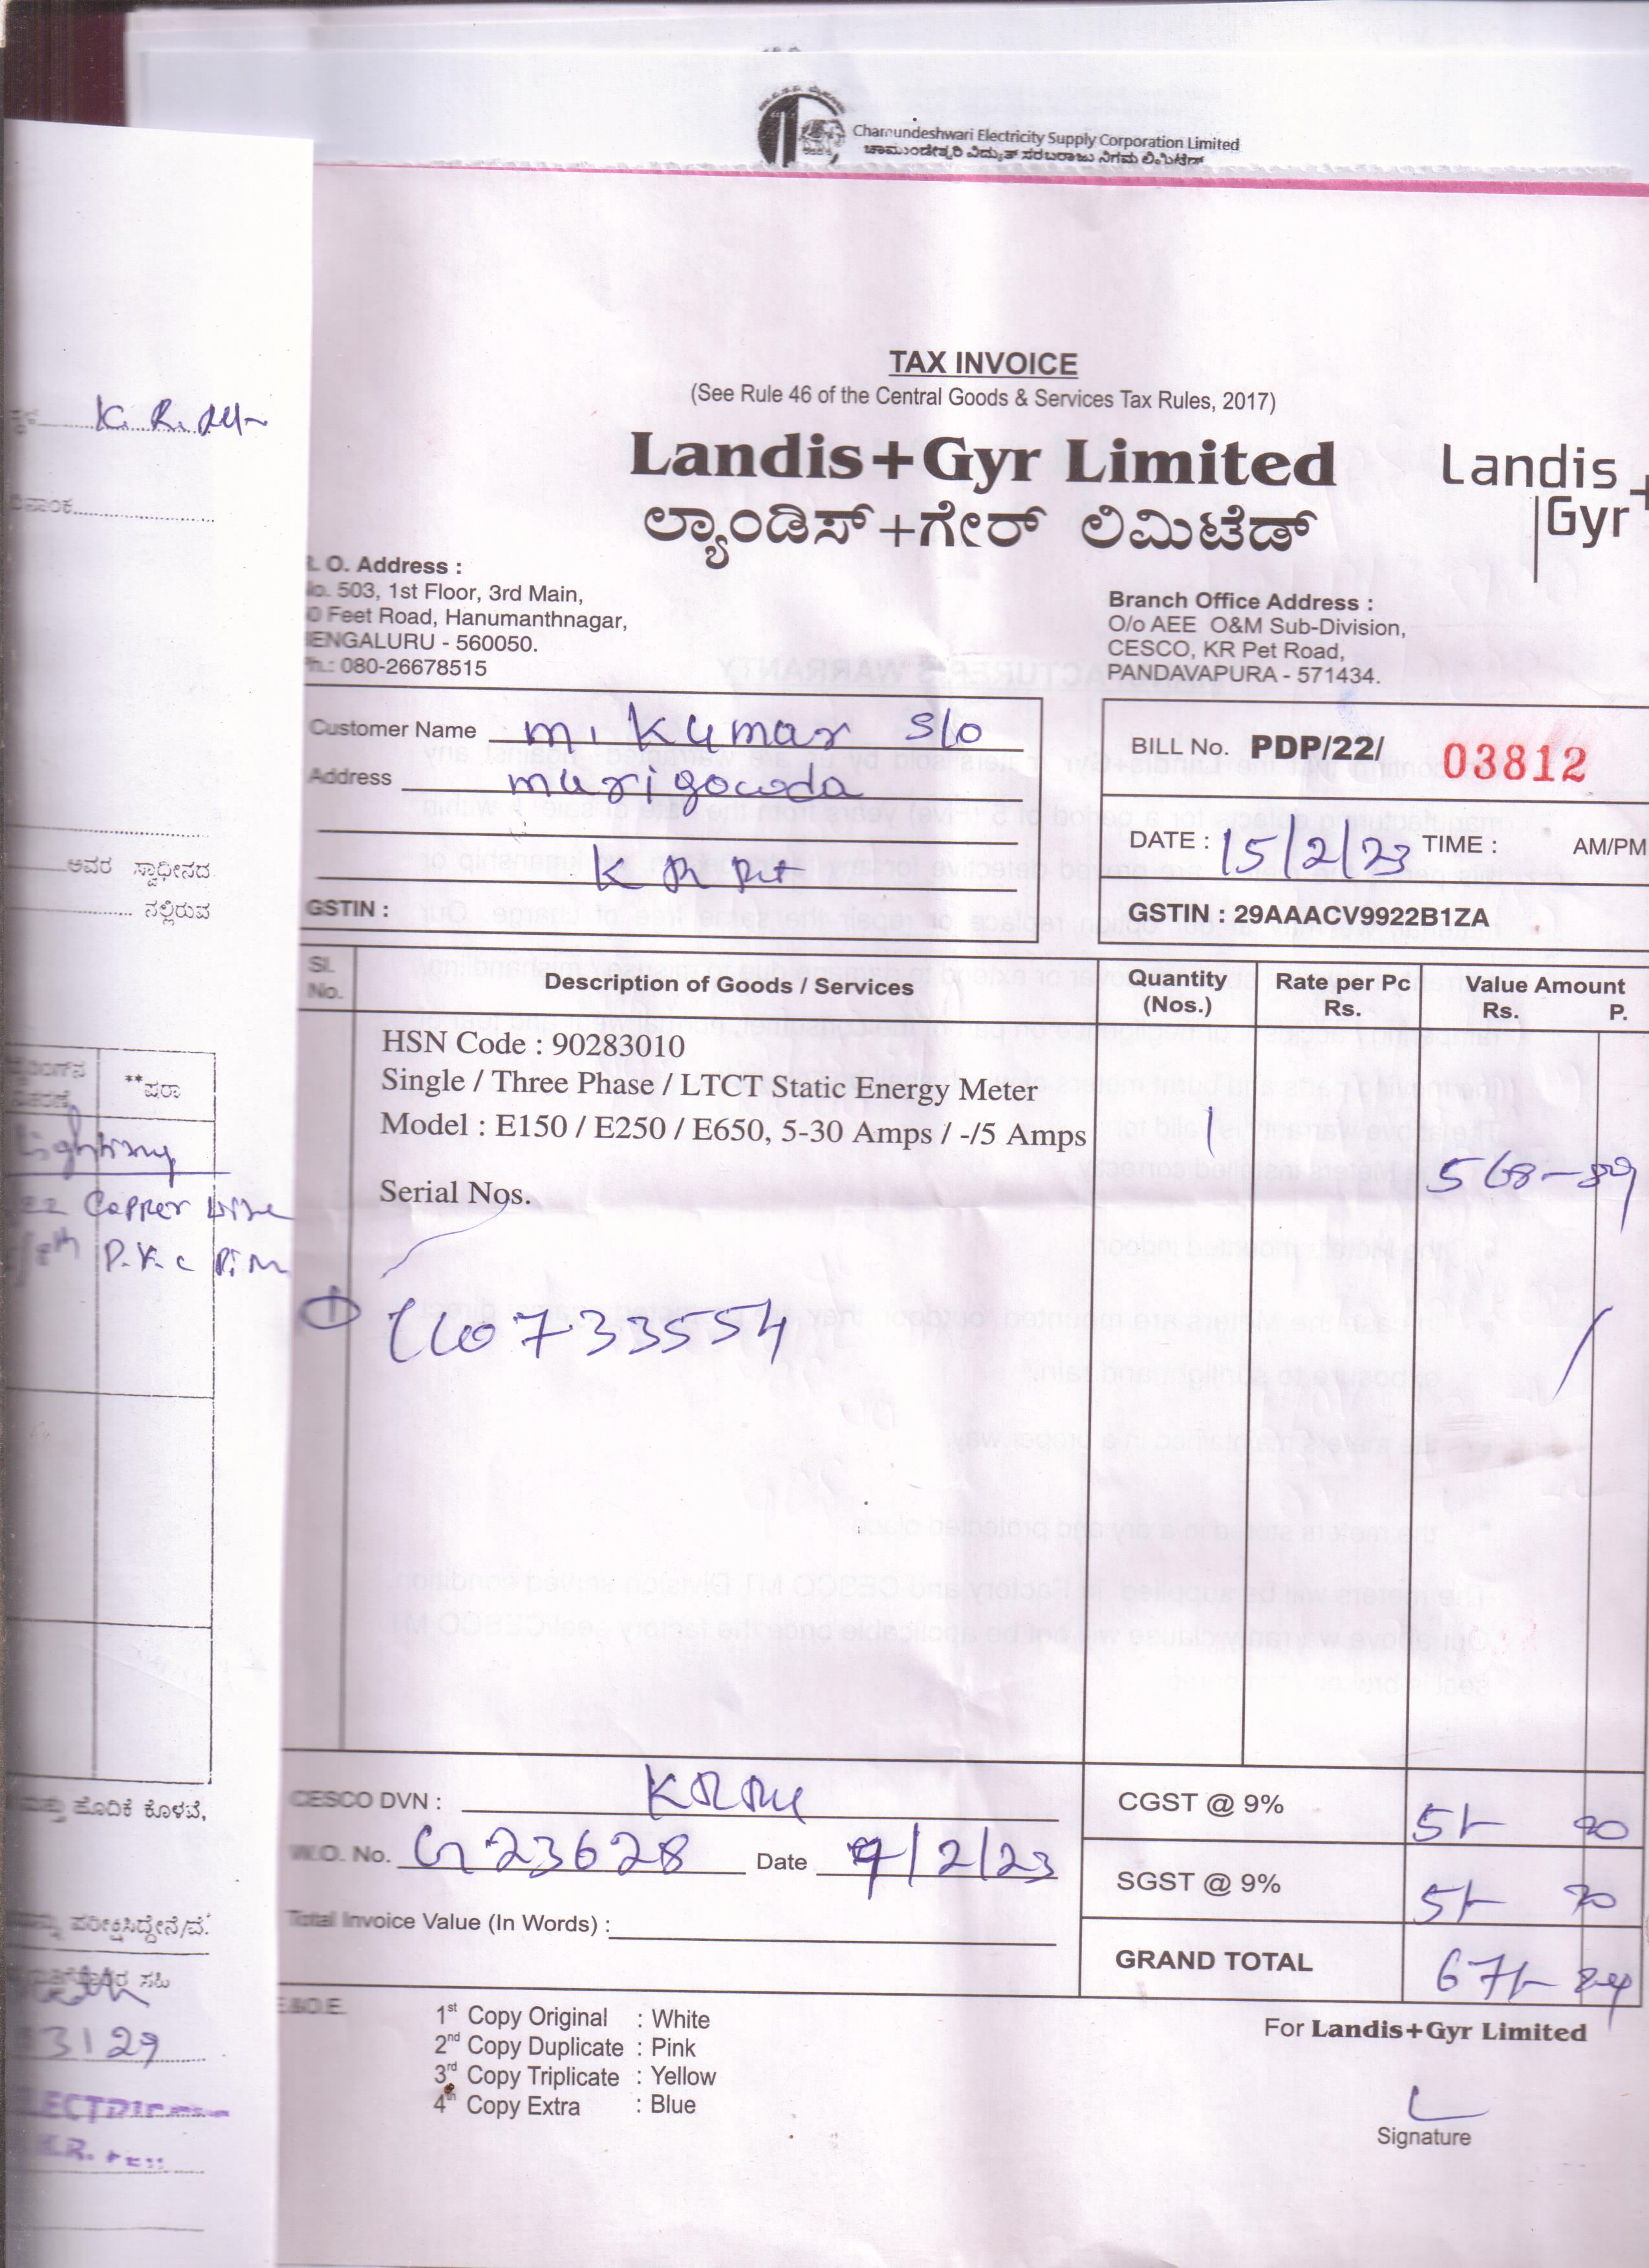 Chamundeshwari Electricity Supply Corporation Limited
ಚಾಮುಂಡೇಶ್ವರಿ ವಿದ್ಯುತ್ ಸರಬರಾಜು ನಿಗಮ ಲಿಮಿಟೆಡ್
TAX INVOICE
(See Rule 46 of the Central Goods & Services Tax Rules, 2017)
Landis+Gyr Limited
ಲ್ಯಾಂಡಿಸ್+ಗೇರ್ ಲಿಮಿಟೆಡ್
Landis
Gyr
O. Address :
503, 1st Floor, 3rd Main,
Feet Road, Hanumanthnagar,
BENGALURU - 560050.
Ph.: 080-26678515
Branch Office Address :
O/o AEE O&M Sub-Division,
CESCO, KR Pet Road,
PANDAVAPURA - 571434.
Customer Name M. Kumar S/o
Address Murigowda
K R Pet
GSTIN :
BILL No. PDP/22/ 03812
DATE : 15/2/23 TIME : AM/PM
GSTIN : 29AAACV9922B1ZA
Sl. No. Description of Goods / Services Quantity (Nos.) Rate per Pc Rs. Value Amount Rs. P.
HSN Code : 90283010
Single / Three Phase / LTCT Static Energy Meter
Model : E150 / E250 / E650, 5-30 Amps / -/5 Amps 1
568-89
Serial Nos.
① 733554
CESCO DVN :
W.O. No. 23628 Date /2/23
Total Invoice Value (In Words) :
CGST @ 9% 51-
SGST @ 9% 51-
GRAND TOTAL 671-
E.&O.E.
1st Copy Original : White
2nd Copy Duplicate : Pink
3rd Copy Triplicate : Yellow
4th Copy Extra : Blue
For Landis+Gyr Limited
Signature
K. R.
ಅವರ ಸ್ವಾಧೀನದ
ನಲ್ಲಿರುವ
**ಷರಾ
Lighting
Copper
ಹೊದಿಕೆ ಕೊಳವೆ,
ಪರೀಕ್ಷಿಸಿದ್ದೇನೆ/ವೆ.
ಸಹಿ
3129
K.R.